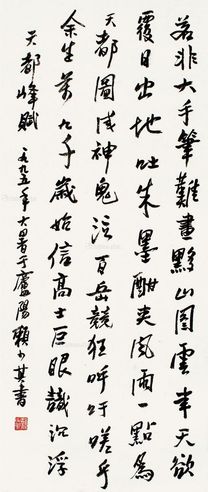 若非大手筆難畫黟山圖雲牽天欲
覆日出地吐朱墨酣夾風雨一點為
天都圖成神鬼泣百岳競狂呼吁嗟乎
余生萬八千歲始信高士巨眼識沉浮
天都峰賦 一九九五年大暑于廬陽賴少其書